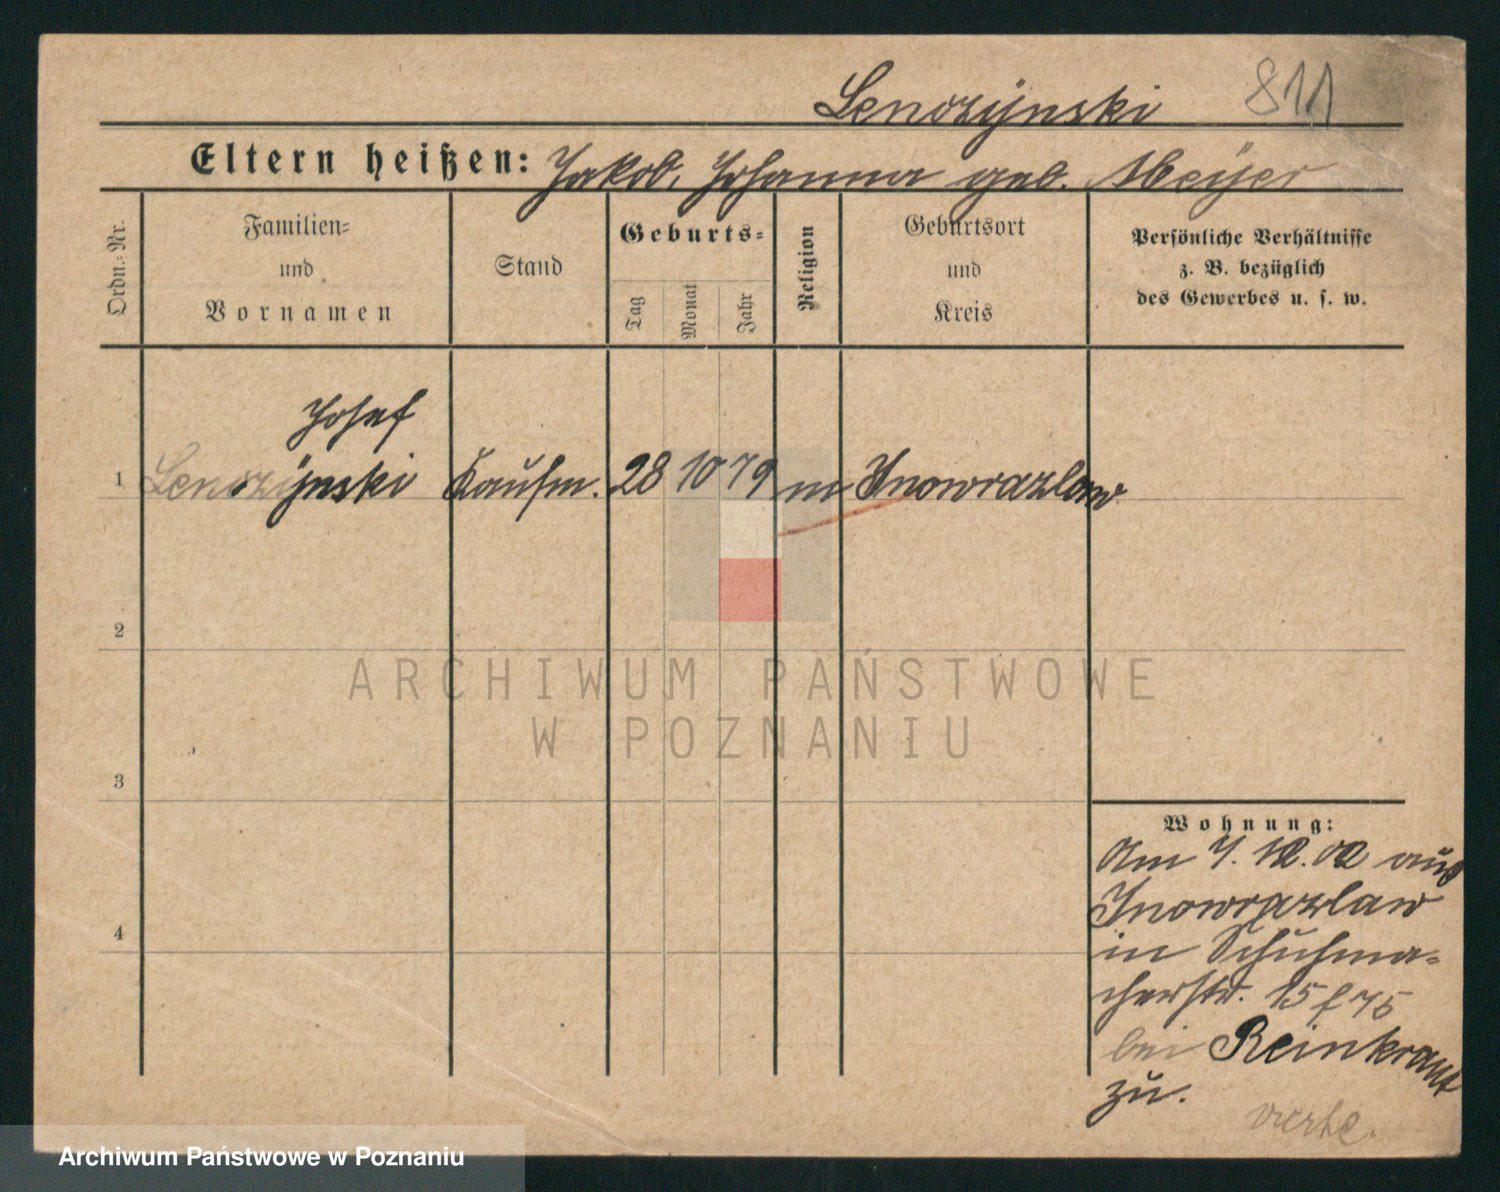 Lenczÿnski 811
Eltern heißen: Jakob, Johanna geb. Meÿer
Ordn.-Nr.
Familien-
und
Vornamen
Stand
Geburts-
Tag
Monat
Jahr
Religion
Geburtsort
und
Kreis
Persönliche Verhältnisse
z. B. bezüglich
des Gewerbes u. s. w.
Josef
1 Lenczÿnski Kaufm. 28 10 79 m Inowrazlaw
2
3
4
Wohnung:
Am 7. 12. 02 aus
Inowrazlaw
in Schuhma-
cherstr. 15
bei Reinkraut
zu.
ARCHIWUM PAŃSTWOWE
W POZNANIU
Archiwum Państwowe w Poznaniu